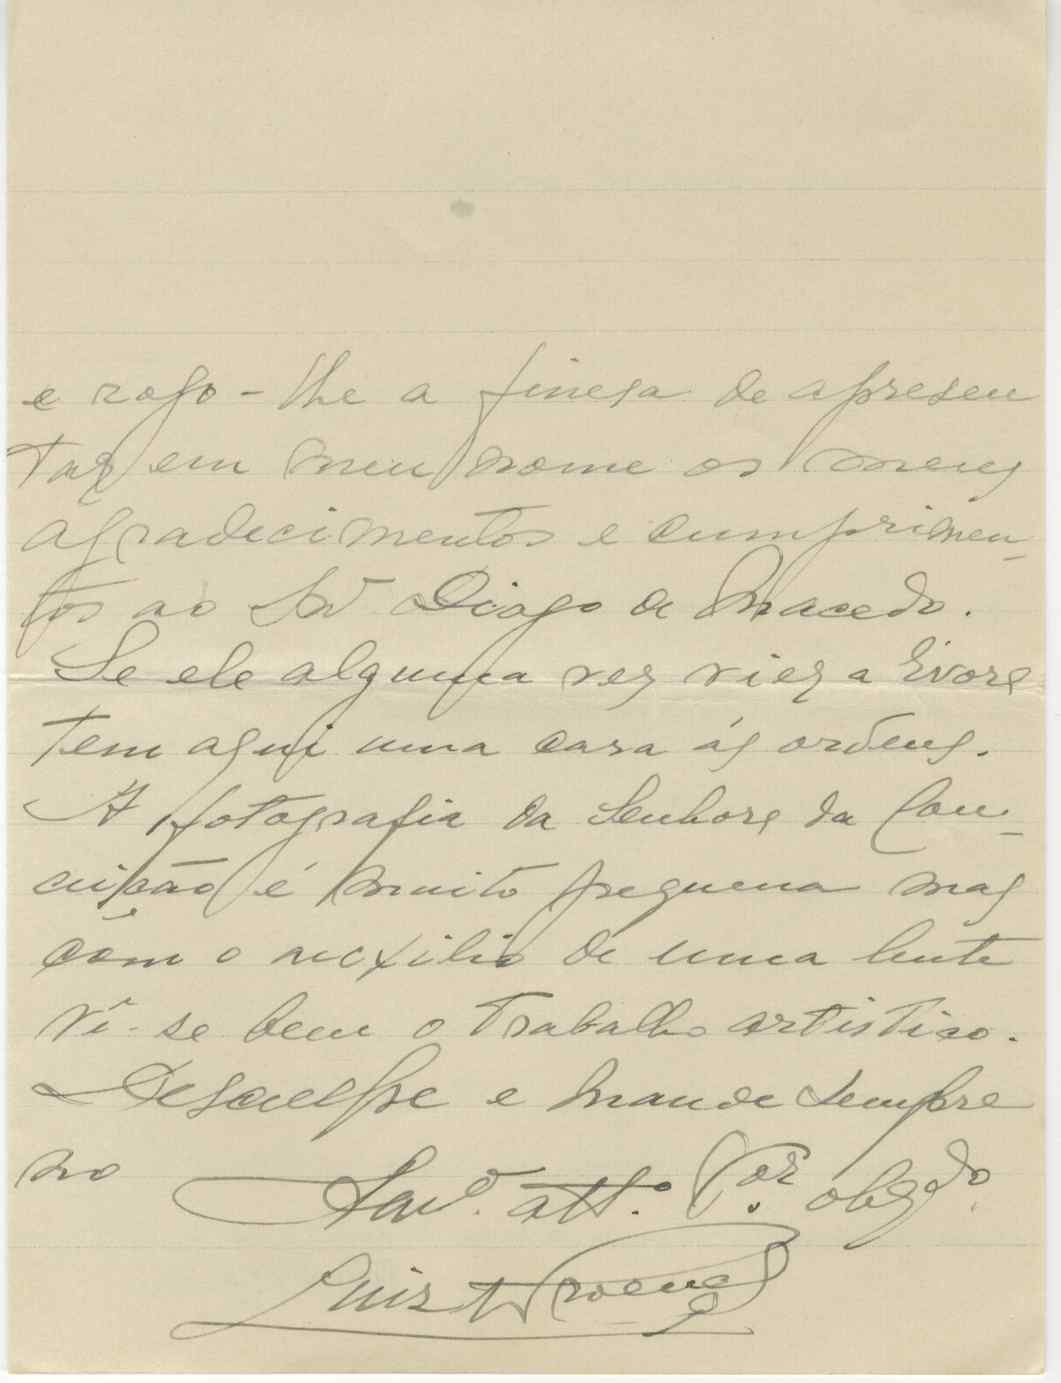 e rogo-lhe a finesa de apresen
tar em meu nome os meus
agradecimentos e cumprimen-
tos ao Snr Diogo de Macedo.
Se ele alguma vez vier a Evora
tem aqui uma casa ás ordens.
A fotografia da Senhora da Con-
ceição é muito pequena mas
com o auxilio de uma lente
vê-se bem o trabalho artistico.
Desculpe e mande sempre
no
att.º Vor obgdo.
Luis